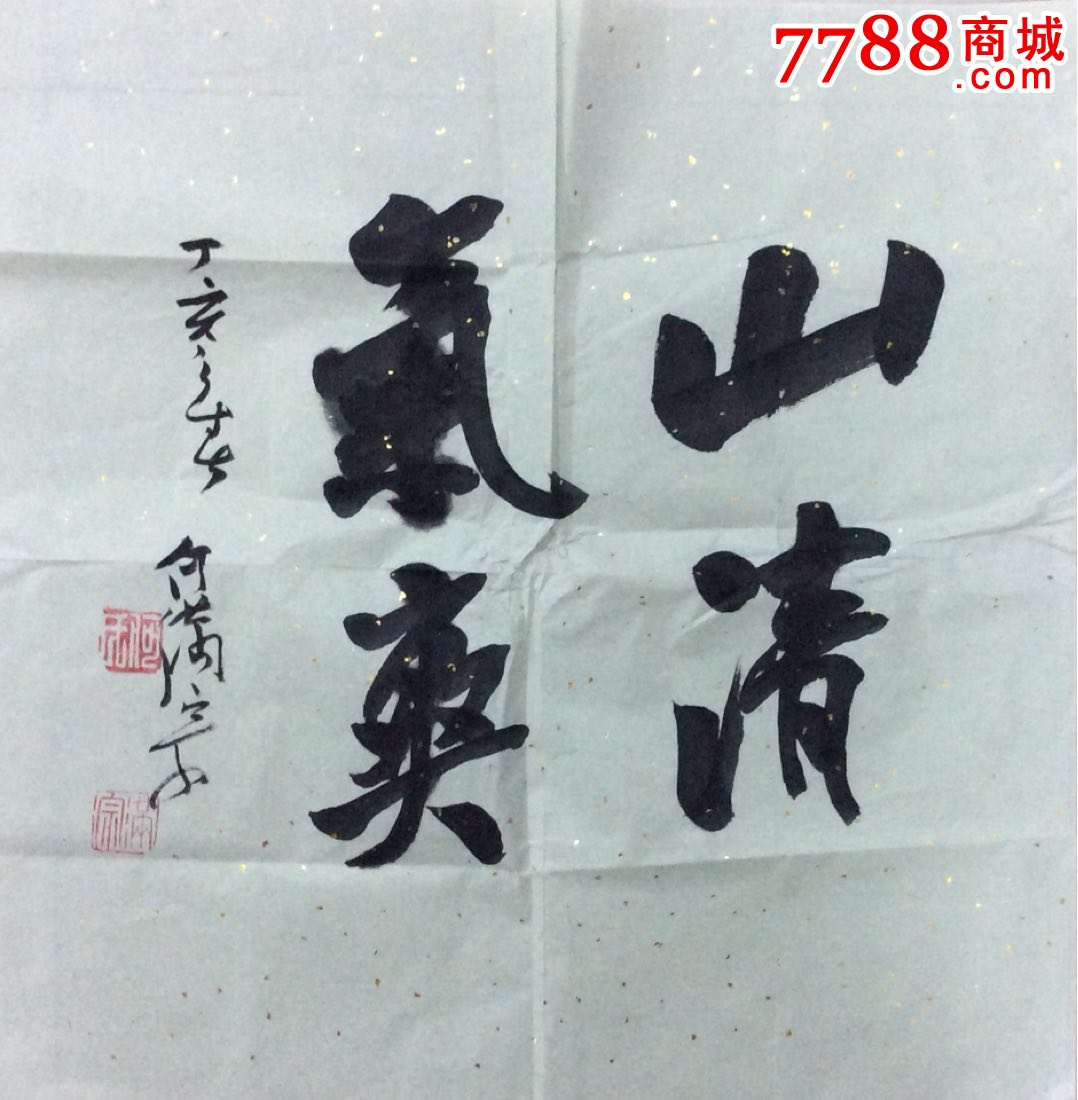 山清
氣爽
丁亥之春
何满宗
7788商城
.com